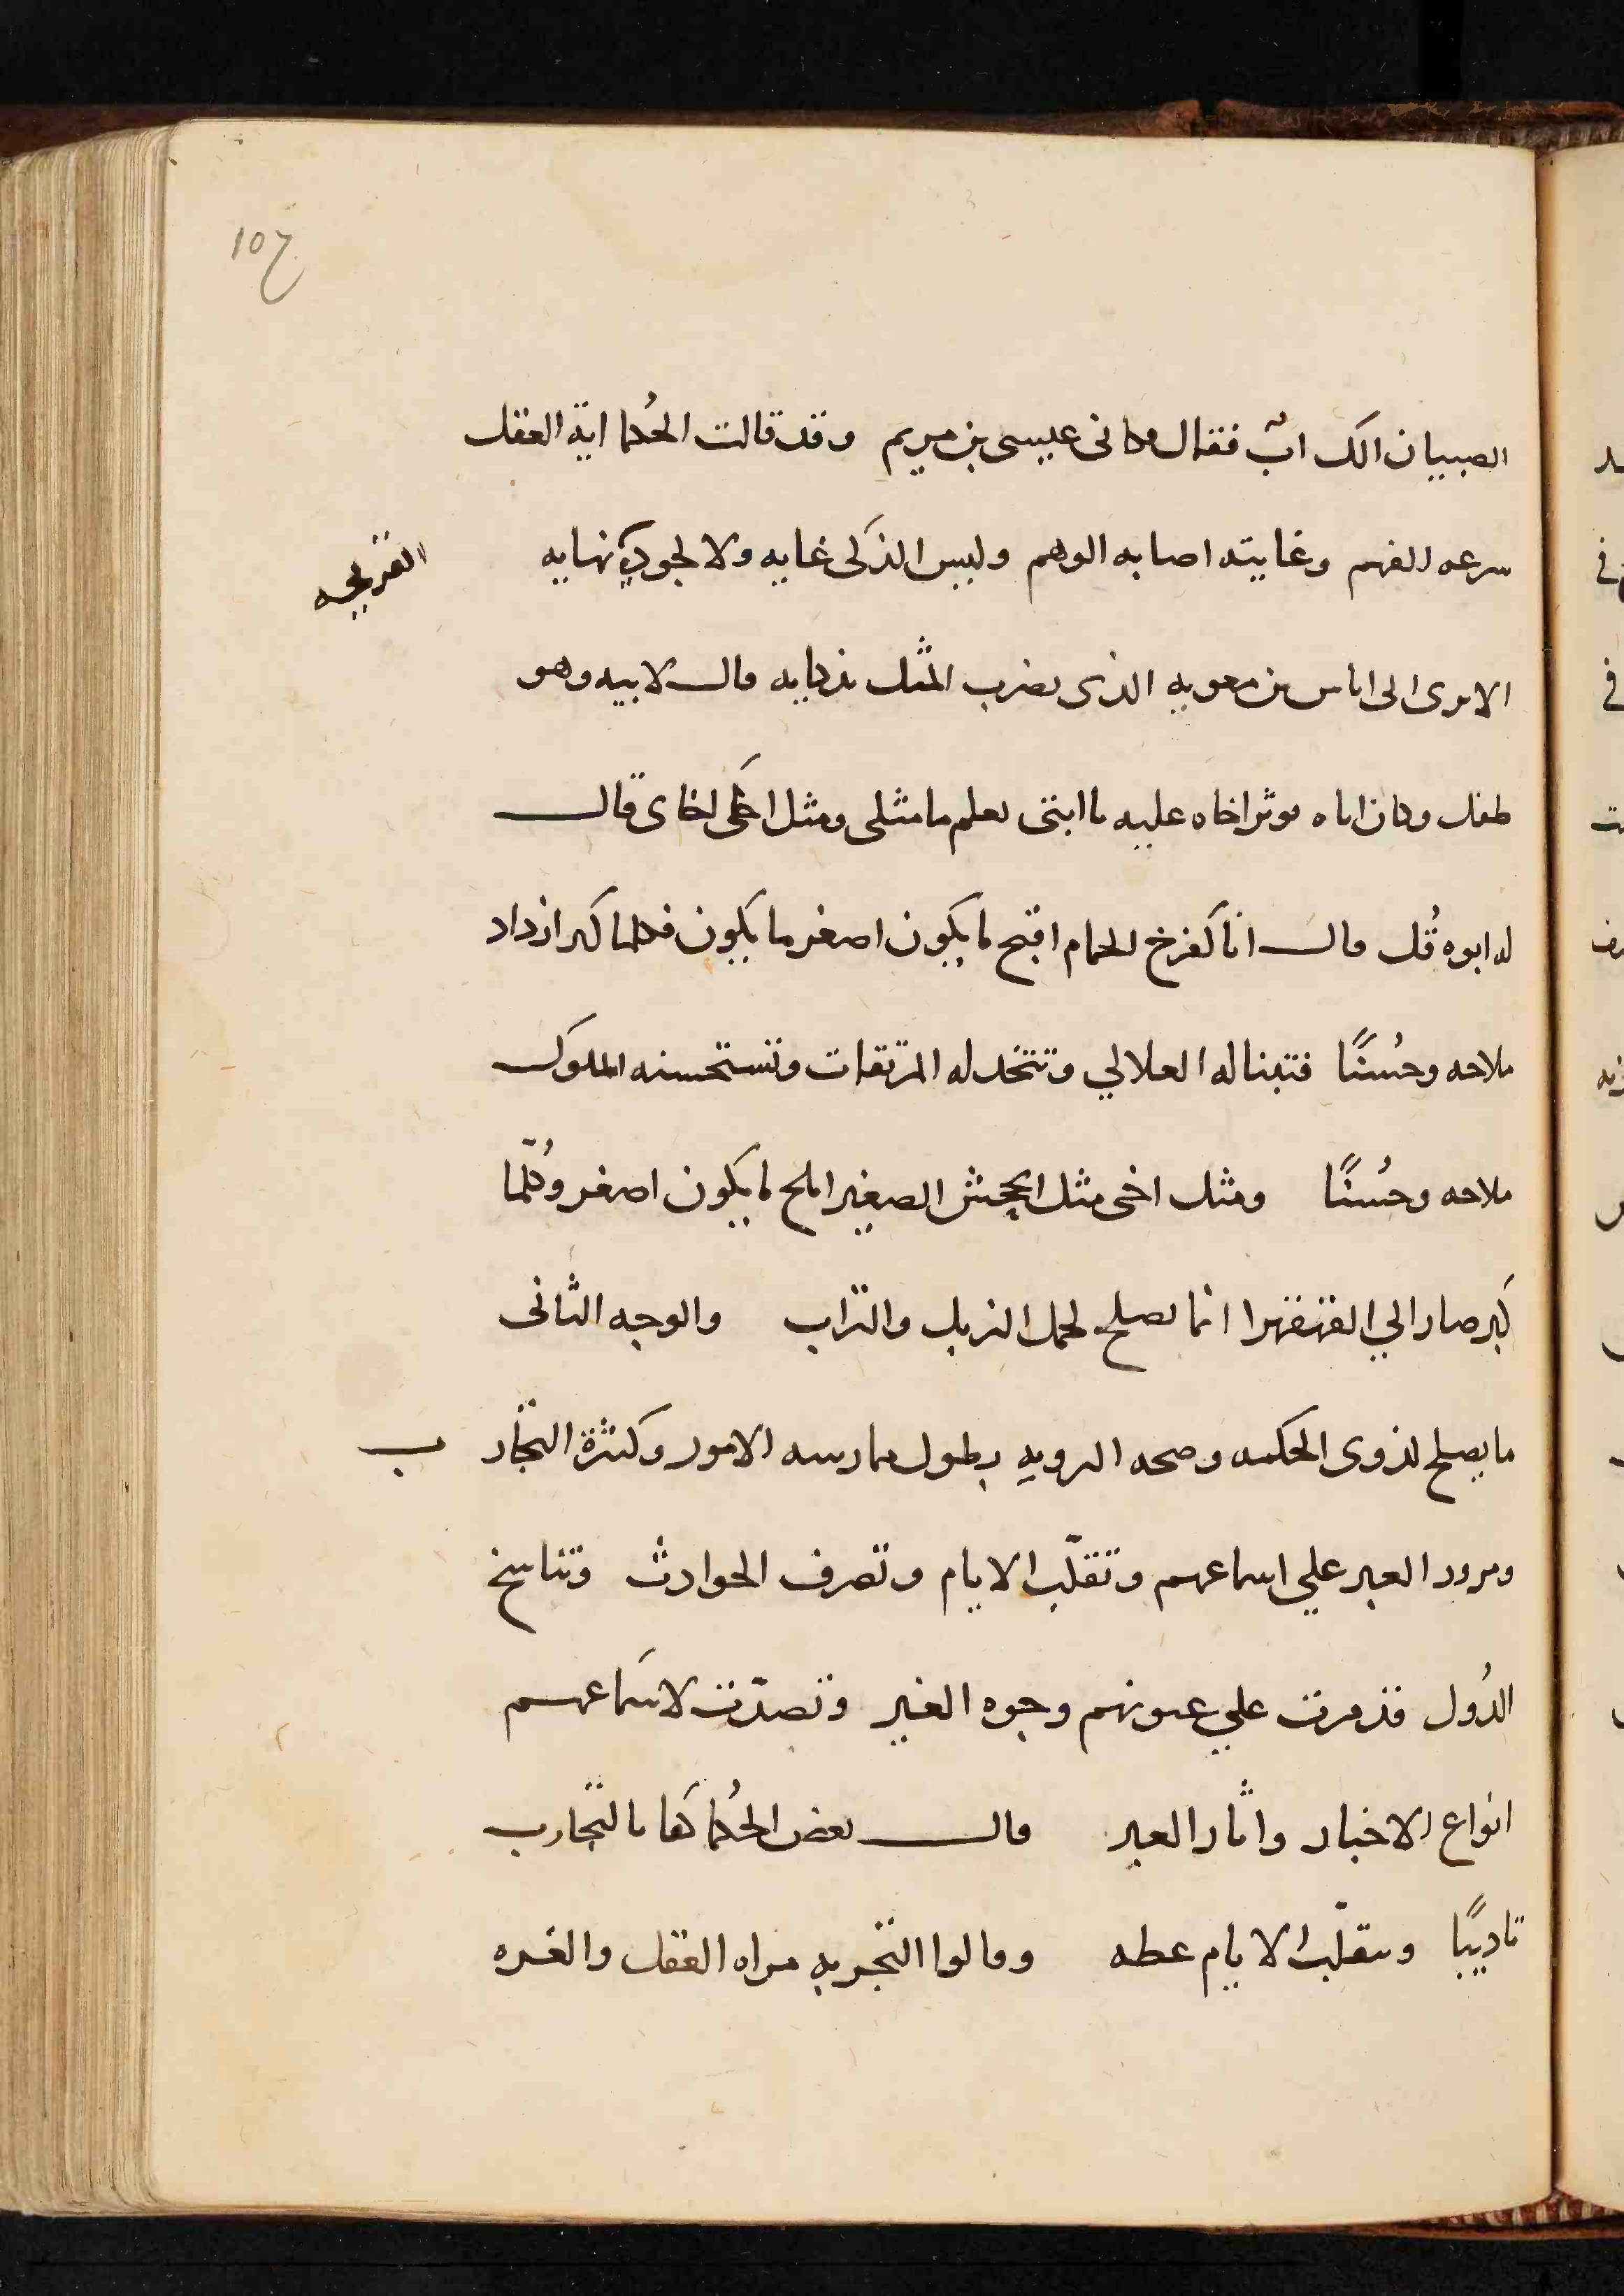 107
الصبيان الك ابٌ فقال وكانى عيسى بن مريم وقد قالت الحُكما اية العقل
سرعه الفهم وغايته اصابه الوهم وليس الذكى غايه ولا لجوده نهايه
القريحه
الا ترى الى اياس بن معويه الذى يضرب المثل بذكايه قال لابيه وهو
طفل وكان اباه يوثر اخاه عليه يا ابتى تعلم ما مثلى ومثل اخى اخاى قال
له ابوه قُل قال انا كفرخ الحمام اقبح ما يكون اصغر ما يكون فكلما كبر ازداد
ملاحه وحُسنًا فتبنا له العلالي وتتخد له المرتقات وتستحسنه الملوك
ملاحه وحُسنًا ومثل اخى مثل الجحش الصغير املح ما يكون اصغر وكُلّما
كبر صار الي القهقهرا انما يصلح لحمل الزبل والتراب والوجه الثانى
ما يصلح لذوى الحكمه وصحه الرويه بطول ممارسه الامور وكثرة التجار ب
ومرور العبر علي اسماعهم وتقلّب الايام وتصرف الحوادث وتناسخ
الدُول قد مرت علي عيونهم وجوه الغير وتصدّت لاسَماعهم
انواع الاخبار واثار العبر قال بعض الحُكما كفا بالتجارب
تاديبًا وبتقلّب الايام عظه وقالوا التجربه مراه العقل والغره